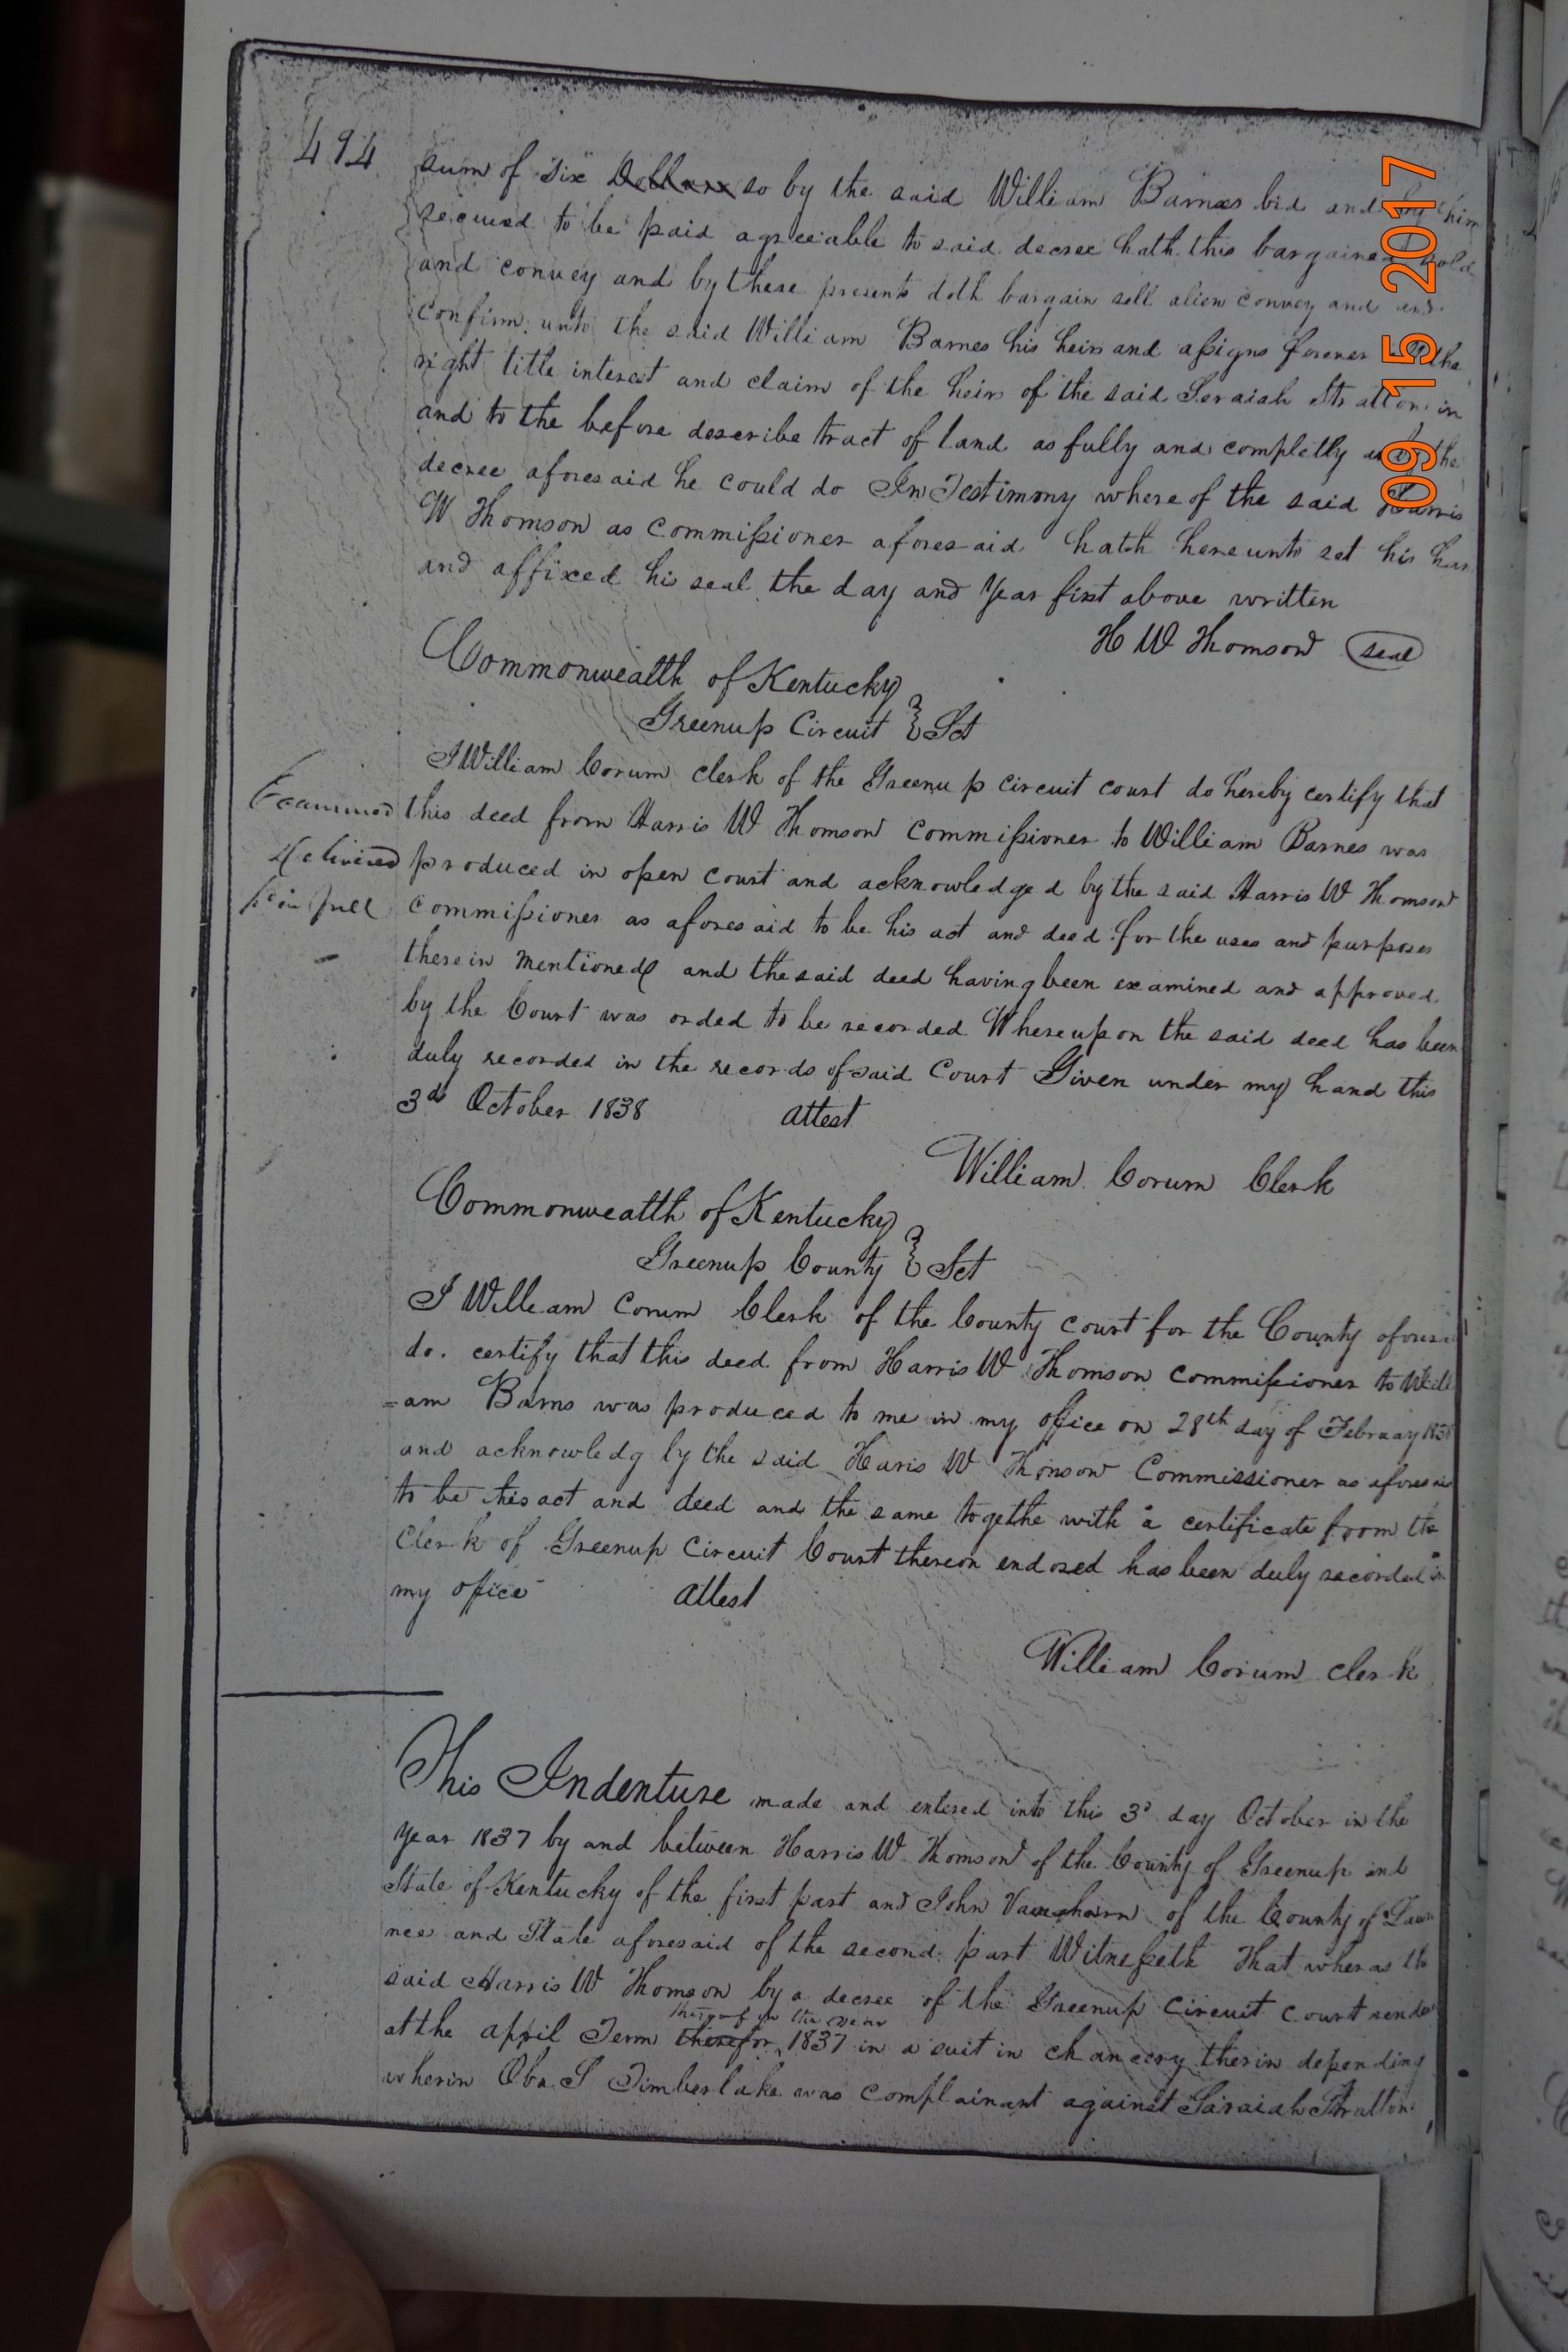 494
sum of six Dollars so by the said William Barnes bid and by him
secured to be paid agreeable to said decree hath this bargained sold
and convey and by these presents doth bargain sell alien convey and and
confirm unto the said William Barnes his heirs and assigns forever the
right title interest and claim of the heirs of the said Seraiah Stratton in
and to the before describe tract of land as fully and completly as by the
decree aforesaid he could do In Testimony whereof the said Harris
W Thomson as commissioner aforesaid hath hereunto set his han
and affixed his seal the day and year first above written
H W Thomson seal
Commonwealth of Kentucky
Greenup Circuit } Sct
I William Corum clerk of the Greenup circuit court do hereby certify that
Examined this deed from Harris W Thomson commissioner to William Barnes was
delivered produced in open court and acknowledged by the said Harris W Thomson
in full commissioner as aforesaid to be his act and deed for the uses and purposes
therein mentioned and the said deed having been examined and approved
by the Court was orded to be recorded Whereupon the said deed has been
duly recorded in the records of said Court Given under my hand this
3d October 1838 attest
William Corum Clerk
Commonwealth of Kentucky
Greenup County } Sct
I William Corum Clerk of the County court for the County aforesa
do. certify that this deed from Harris W Thomson commissioner to Will
=am Barns was produced to me in my office on 28th day of Februay 1838
and acknowledg by the said Haris W Thomson Commissioner as aforesai
to be his act and deed and the same togethe with a certificate from the
Clerk of Greenup Circuit Court thereon endosed has been duly recorded in
my office attest
William Corum clerk
This Indenture made and entered into this 3d day October in the
year 1837 by and between Harris W Thomson of the County of Greenup and
State of Kentucky of the first part and John Vaughan of the County of Law
nce and State aforesaid of the second part Witnesseth That wheras the
said Harris W Thomson by a decree of the Greenup circuit court rende
thereof in the year
at the april Term therefor 1837 in a suit in chancery therin depending
wherin Oba S Timberlake was complainant against Saraiah Stratton
09 15 2017